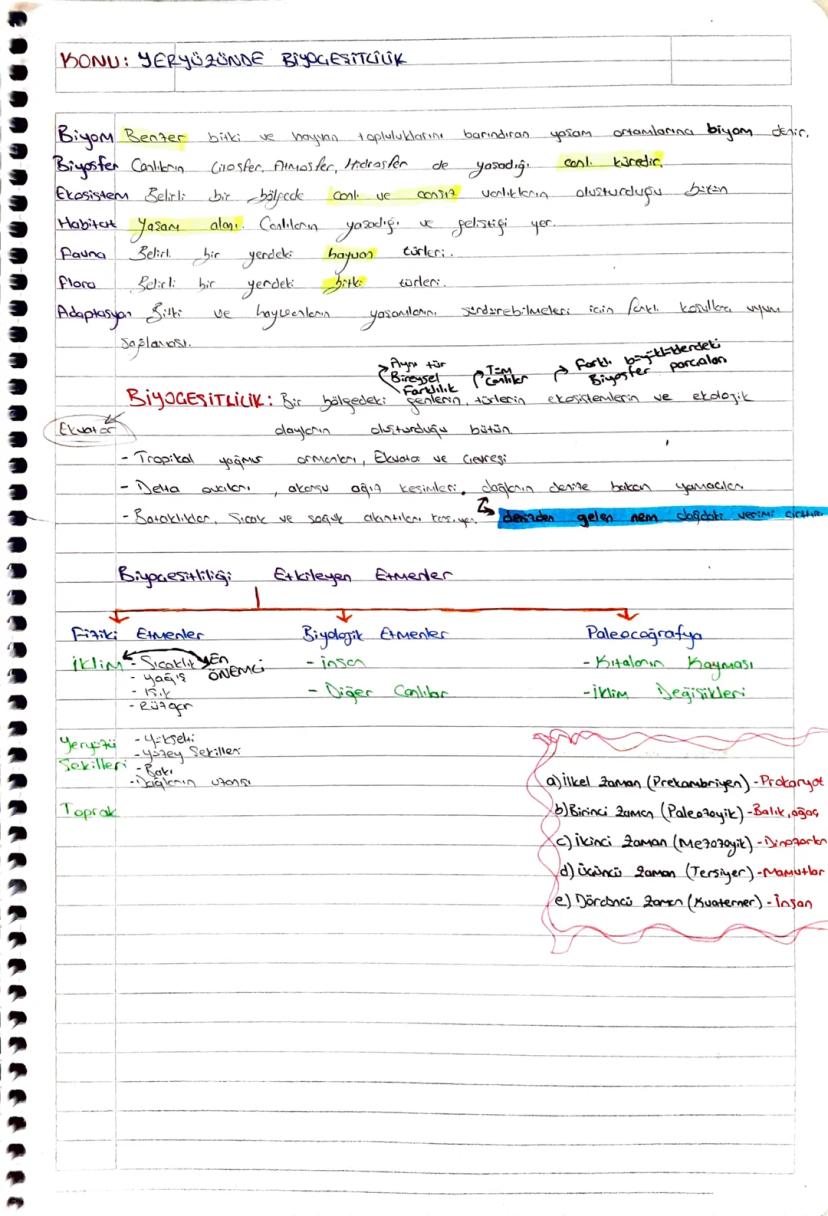 KONU: YERYÜZÜNDE BİYOÇEŞİTLİLİK
Biyom Benzer bitki ve hayvan topluluklarını barındıran yaşam ortamlarına biyom denir.
Biyosfer Canlıların Litosfer, Atmosfer, Hidrosfer de yaşadığı canlı küredir.
Ekosistem Belirli bir bölgede canlı ve cansız varlıkların oluşturduğu bütün
Habitat Yaşam alanı. Canlıların yaşadığı ve geliştiği yer.
Fauna Belirli bir yerdeki hayvan türleri.
Flora Belirli bir yerdeki bitki türleri.
Adaptasyon Bitki ve hayvanların yaşamlarını sürdürebilmeleri için farklı koşullara uyum
sağlaması.
Aynı tür Bireysel Farklılık
Tüm Canlılar
Farklı büyüklüklerdeki Biyosfer parçaları
BİYOÇEŞİTLİLİK: Bir bölgedeki genlerin, türlerin ekosistemlerin ve ekolojik
Ekvator olayların oluşturduğu bütün
- Tropikal yağmur ormanları, Ekvator ve Çevresi
- Delta ovaları, akarsu ağzı kesimleri, dağların denize bakan yamaçları
- Bataklıklar, Sıcak ve soğuk akıntıları denizden gelen nem dağdaki verimi arttırır
Biyoçeşitliliği Etkileyen Etmenler
Fiziki Etmenler Biyolojik Etmenler Paleocoğrafya
İklim - Sıcaklık EN ÖNEMCİ - İnsan - Kıtaların Kayması
- Yağış
- Işık - Diğer Canlılar - İklim Değişikleri
- Rüzgar
Yeryüzü Şekilleri - Yükselti
- Yüzey Şekiller
- Bakı
- Dağların uzanışı
Toprak
a) İlkel Zaman (Prekambriyen) - Prokaryot
b) Birinci Zaman (Paleozoyik) - Balık, ağaç
c) İkinci Zaman (Mezozoyik) - Dinozorlar
d) Üçüncü Zaman (Tersiyer) - Mamutlar
e) Dördüncü Zaman (Kuaterner) - İnsan